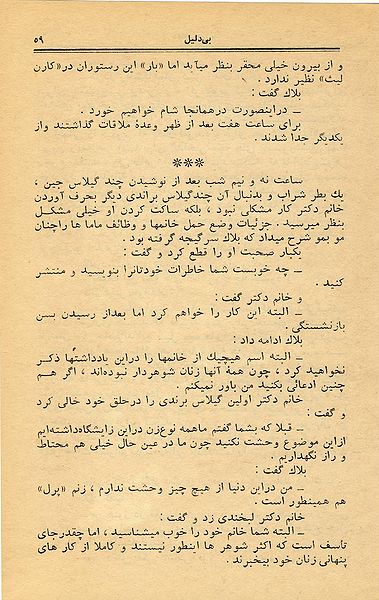 بی‌دلیل ۵۹
و از بیرون خیلی محقر بنظر میآید اما «بار» این رستوران در«کارن
لیث» نظیر ندارد .
بلاك گفت :
ــ دراینصورت درهمانجا شام خواهیم خورد .
برای ساعت هفت بعد از ظهر وعدهٔ ملاقات گذاشتند واز
یکدیگر جدا شدند .
***
ساعت نه و نیم شب بعد از نوشیدن چند گیلاس جین ،
یك بطر شراب و بدنبال آن چندگیلاس براندی دیگر بحرف آوردن
خانم دکتر کار مشکلی نبود ، بلکه ساکت کردن او خیلی مشکل
بنظر میرسید . جزئیات وضع حمل خانمها و وظائف ماما ها راچنان
مو بمو شرح میداد که بلاك سرگیجه گرفته بود .
یکبار صحبت او را قطع کرد و گفت :
ــ چه خوبست شما خاطرات خودتانرا بنویسید و منتشر
کنید .
و خانم دکتر گفت :
ــ البته این کار را خواهم کرد اما بعداز رسیدن بسن
بازنشستگی .
بلاك ادامه داد :
ــ البته اسم هیچیك از خانمها را دراین یادداشتها ذکر
نخواهید کرد ، چون همهٔ آنها زنان شوهردار نبوده‌اند ، اگر هم
چنین ادعائی بکنید من باور نمیکنم .
خانم دکتر اولین گیلاس برندی را درحلق خود خالی کرد
و گفت :
ــ قبلا که بشما گفتم ماهمه نوع‌زن دراین زایشگاه‌داشته‌ایم
ازاین موضوع وحشت نکنید چون ما در عین حال خیلی هم محتاط
و راز نگهداریم .
بلاك گفت :
ــ من دراین دنیا از هیچ چیز وحشت ندارم ، زنم «پرل»
هم همینطور است .
خانم دکتر لبخندی زد و گفت :
ــ البته شما خانم خود را خوب میشناسید ، اما چقدرجای
تأسف است که اکثر شوهر ها اینطور نیستند و کاملا از کار های
پنهانی زنان خود بیخبرند .